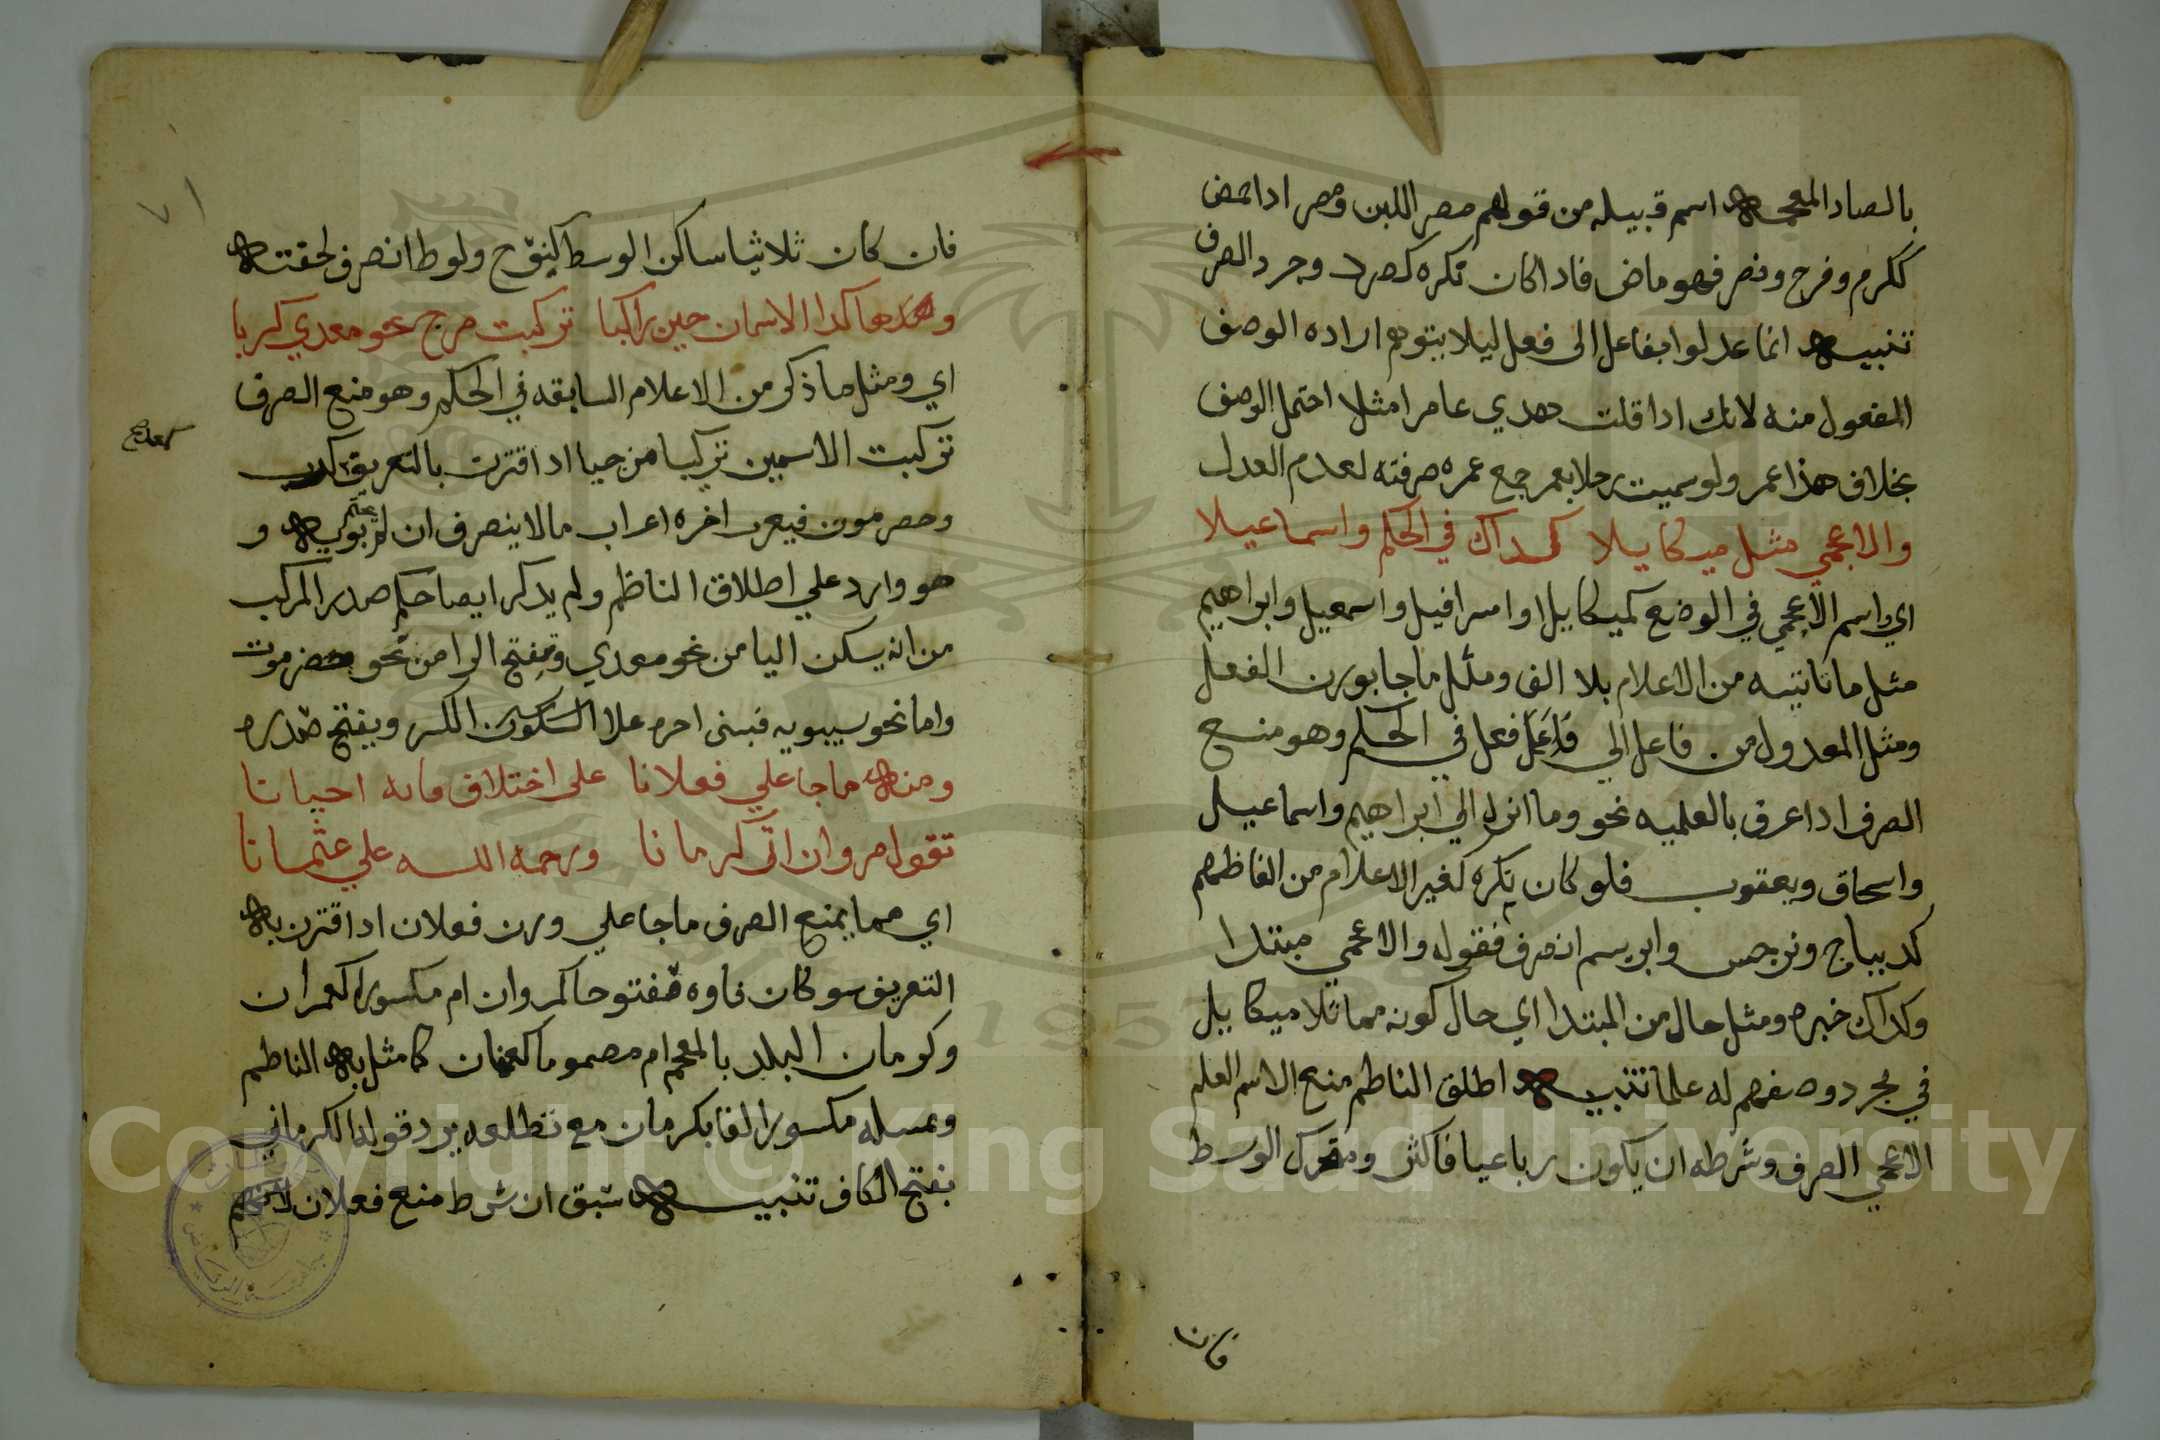 بالصاد المعجمه اسم قبيله من قولهم مضر اللبن ومضر اذا حمض
ككرم وفرح ونصر فهو ماض فاذا كان نكره كصرد وجرد الصرف
تنبيه انما عدلوا بفاعل الى فعل ليلا يتوهم اراده الوصف
المفعول منه لانك اذا قلت هدي عامرا مثلا احتمل الوصف
بخلاف هذا عمر ولو سميت رجلا بعمر جمع عمره صرفته لعدم العدل
والاعجمي مثل ميكاييلا كذاك في الحكم واسماعيلا
اي واسم الاعجمي في الوضع كميكاييل او اسرافيل واسمعيل وابراهيم
مثل ما تانيثه من الاعلام بلا الف ومثل ما جا بوزن الفعل
ومثل المعدول من فاعل الي فعل في الحكم وهو منع
الصرف اذا عرف بالعلميه نحو وما انزل الي ابراهيم واسماعيل
واسحاق ويعقوب فلو كان نكره لغير الاعلام من الفاظهم
كديباج ونرجس وابريسم انصرف فقوله والاعجمي مبتدا
وكذاك خبره ومثل حال من المبتدا اي حال كونه مماثلا ميكاييل
في وضعهم له علما تنبيه اطلق الناظم منع الاسم العلم
الاعجمي الصرف وشرطه ان يكون رباعيا فاكثر ومتحرك الوسط
فان
٧١
فان كان ثلاثيا ساكن الوسط كنوح ولوط انصرف لخفته
وهكذا الاسمان حين ركبا تركيب مزج نحو معدي كربا
اي ومثل ما ذكر من الاعلام السابقه في الحكم وهو منع الصرف
تركيب الاسمين تركيبا مزجيا اذا اقترن بالتعريف
وحضرموت فيعرب اخره اعراب ما لا ينصرف ان لم يختم بويه و
هو وارد علي اطلاق الناظم ولم يذكر ايضا حكم صدر المركب
من انه يسكن اليا من نحو معدي وتفتح الرا من نحو حضرموت
واما نحو سيبويه فبنى اخره علا الكسر ويفتح صدره
ومنه ما جا علي فعلانا على اختلاف فايه احيانا
تقول مروان اتى كرمانا ورحمة الله علي عثمانا
اي مما يمنع الصرف ما جا علي وزن فعلان اذا اقترن به
التعريف سو كان فاوه مفتوحا كمروان ام مكسورا كعمران
وكرمان البلد بالمعجم ام مضموما كعثمان كما مثل به الناظم
بفتح الكاف تنبيه سبق ان شرط منع فعلان